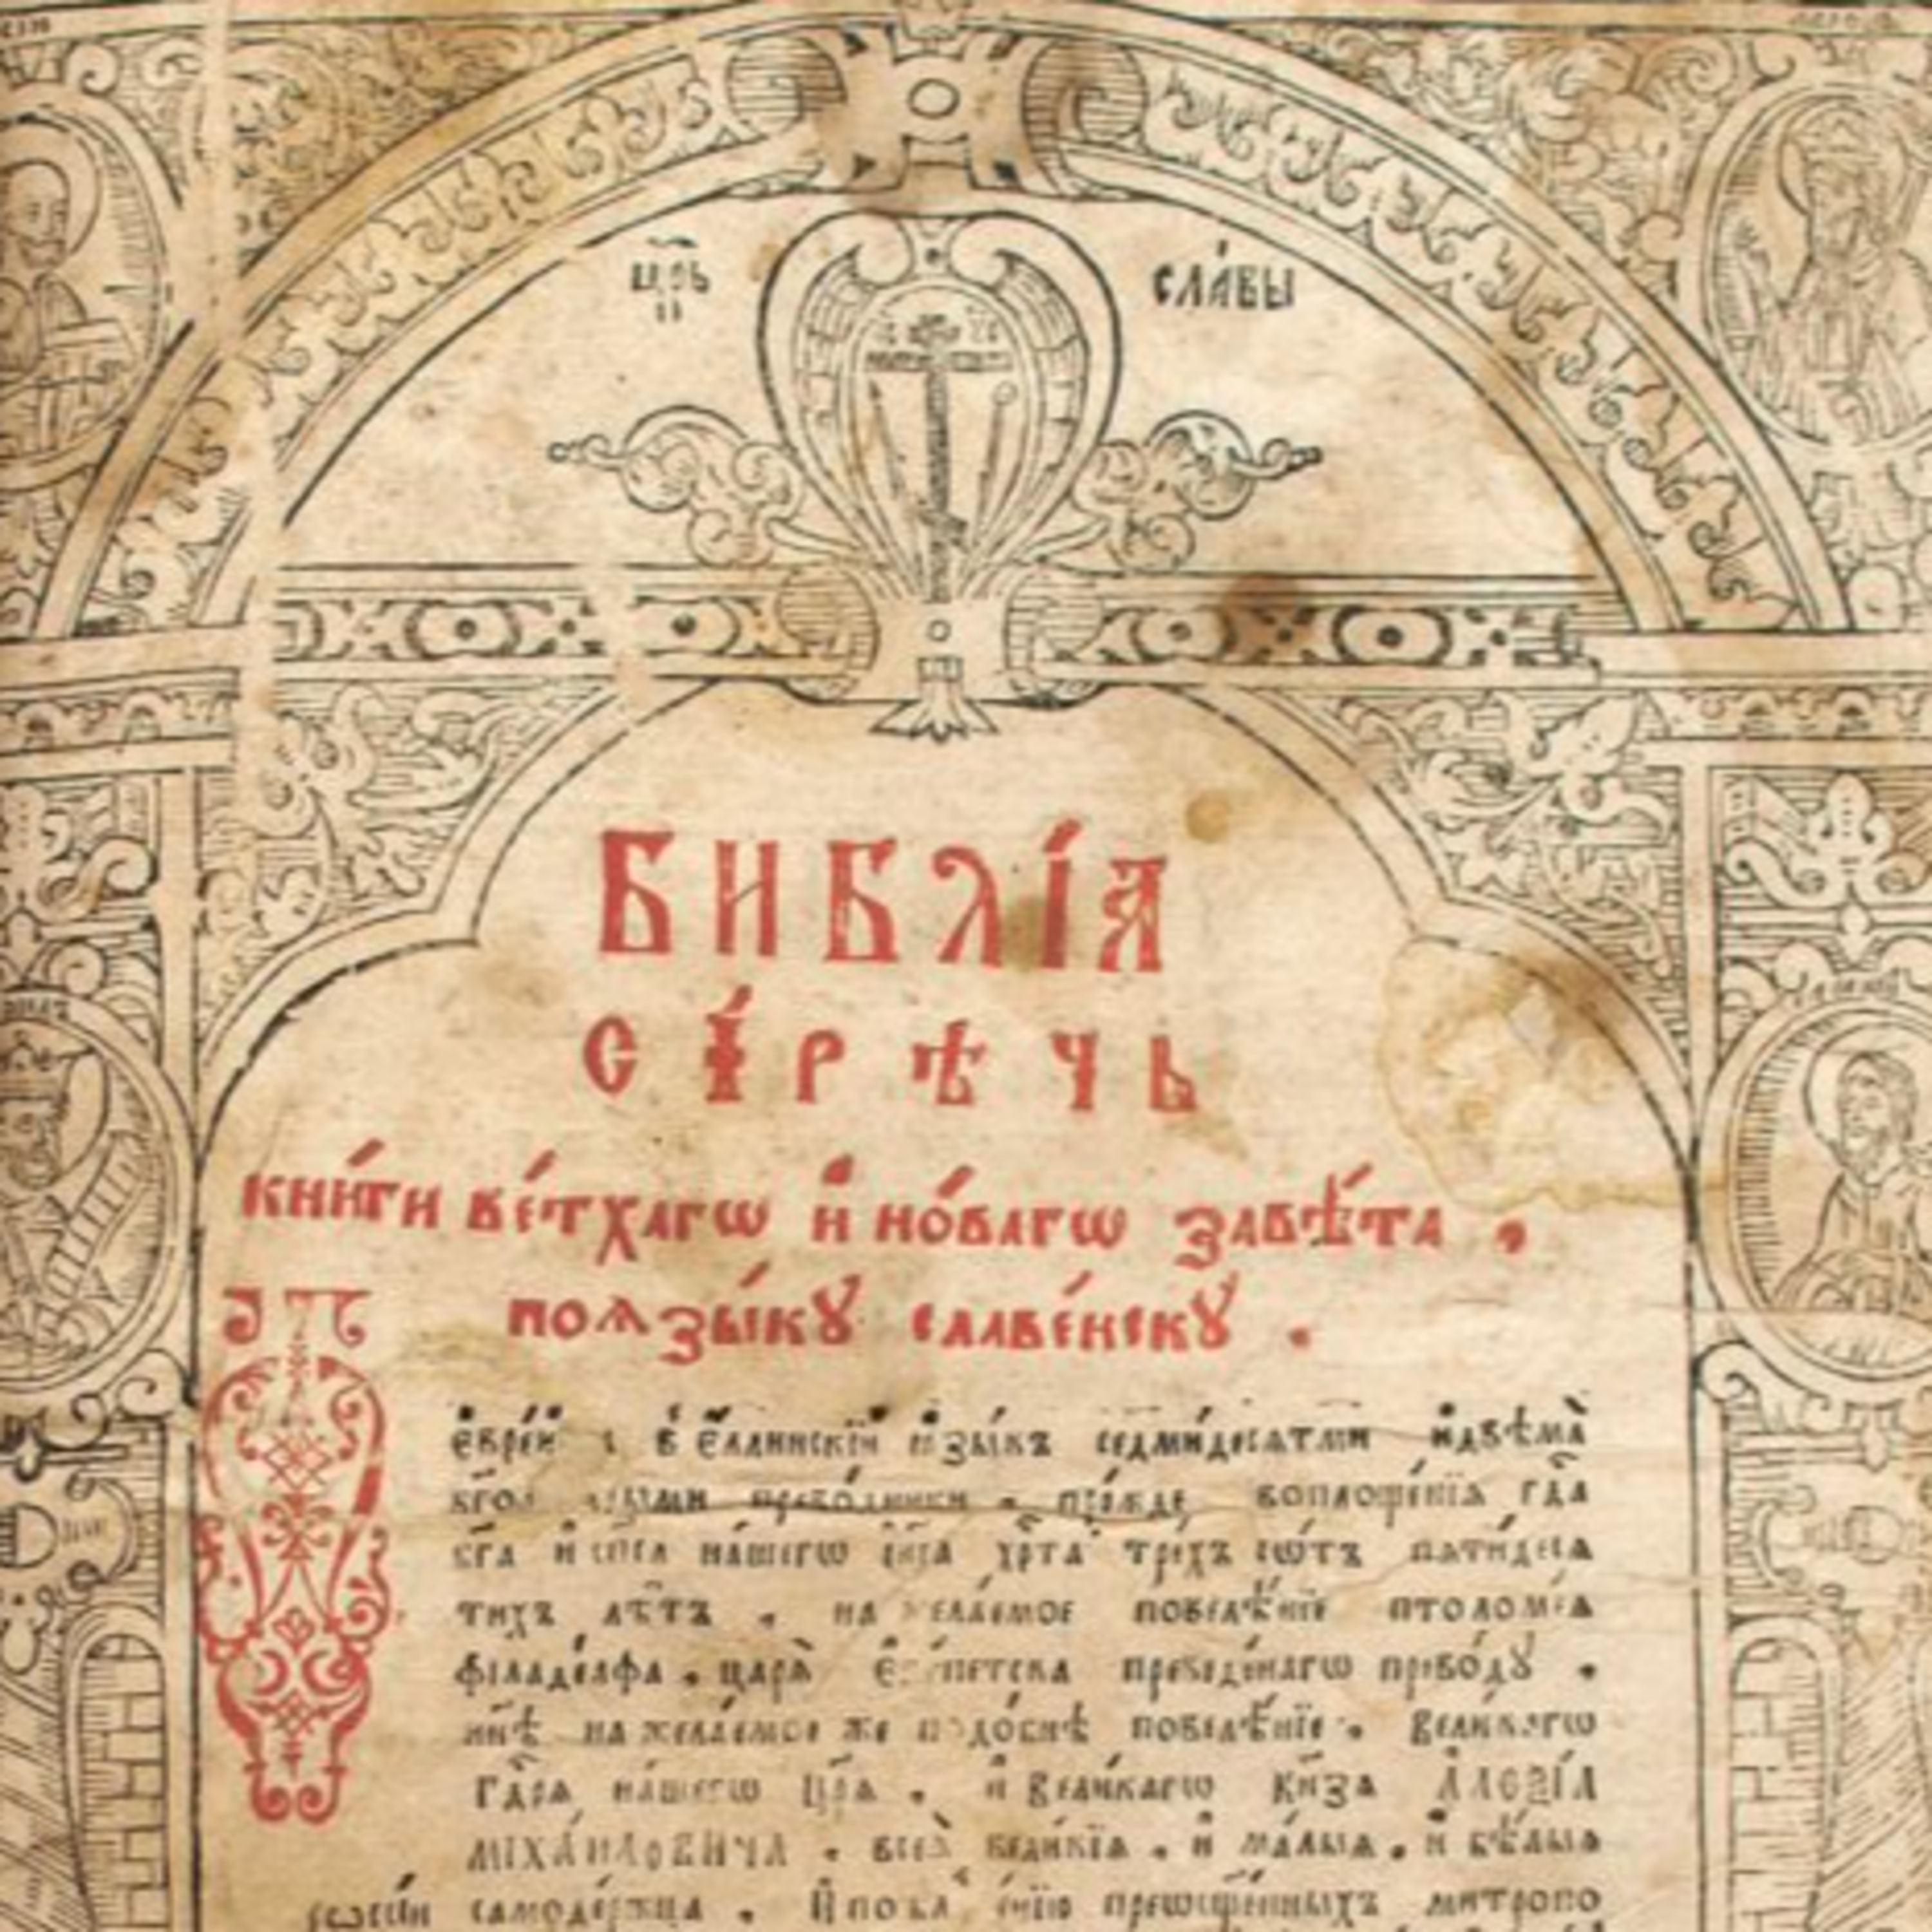 ЦР҃Ь СЛА́ВЫ
БИБЛІ́Ѧ
СІ́РѢЧЬ
кни́ги ве́тхагѡ и҆ но́вагѡ завѣ́та .
поѧзы́кꙋ славе́нскꙋ .
є҆вре́й в є҆ллинскїй ѧ҆зы́къ седми́десѧтми и҆двѣма̀
прево́дники . пре́жде воплоще́нїѧ гдⷭ҇а
бг҃а и҆ сп҃са на́шегѡ і҆и҃са хрⷭ҇та̀ тре́хъ сѡ́тъ пѧти́десѧ
тихъ лѣ́тъ . на повелѣ́нїе птоломе́а
філаде́лфа . царѧ̀ преведе́нагѡ прево́дꙋ .
нн҃ѣ на жела́емое же подо́бнѣ повелѣ́нїе . вели́кагѡ
гдⷭ҇рѧ на́шегѡ цр҃ѧ̀ . и҆ вели́кагѡ кн҃зѧ А҆ЛЕѮІ́А
МІХА́ИЛОВИЧА . всеѧ̀ вели́кїѧ . и҆ ма́лыѧ . и҆ бѣ́лыѧ
рѡсі́и самоде́ржца . И҆ прѡсщ҃е́нныхъ митропо